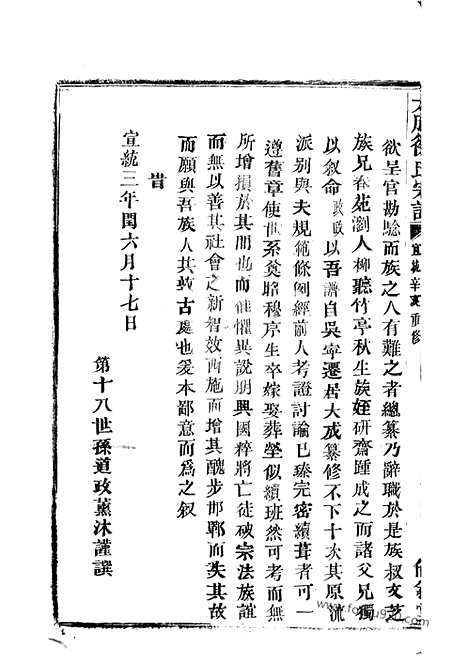 宗譜
宣統辛亥重修
欲呈官勘驗而族之人有難之者總纂乃辭職於是族叔文芝
族兄春苑瀏人柳聽竹亭秋生族姪研齋踵成之而諸父兄獨
以叙命政政以吾譜自吳寧遷居大成纂修不下十次其原流
派别與夫規範條例經前人考證討論已臻完密續葺者可一
遵舊章使世系奠昭穆序生卒嫁娶葬塋似續班然可考而無
所增損於其間也而懼異說朋興國粹將亡徒破宗法族誼
而無以善其社會之新智效西施而增其醜步邯鄲而失其故
而願與吾族人共敦古處也爰本鄙意而爲之叙
昔
宣統三年閏六月十七日
第十八世孫道政薰沐謹譔